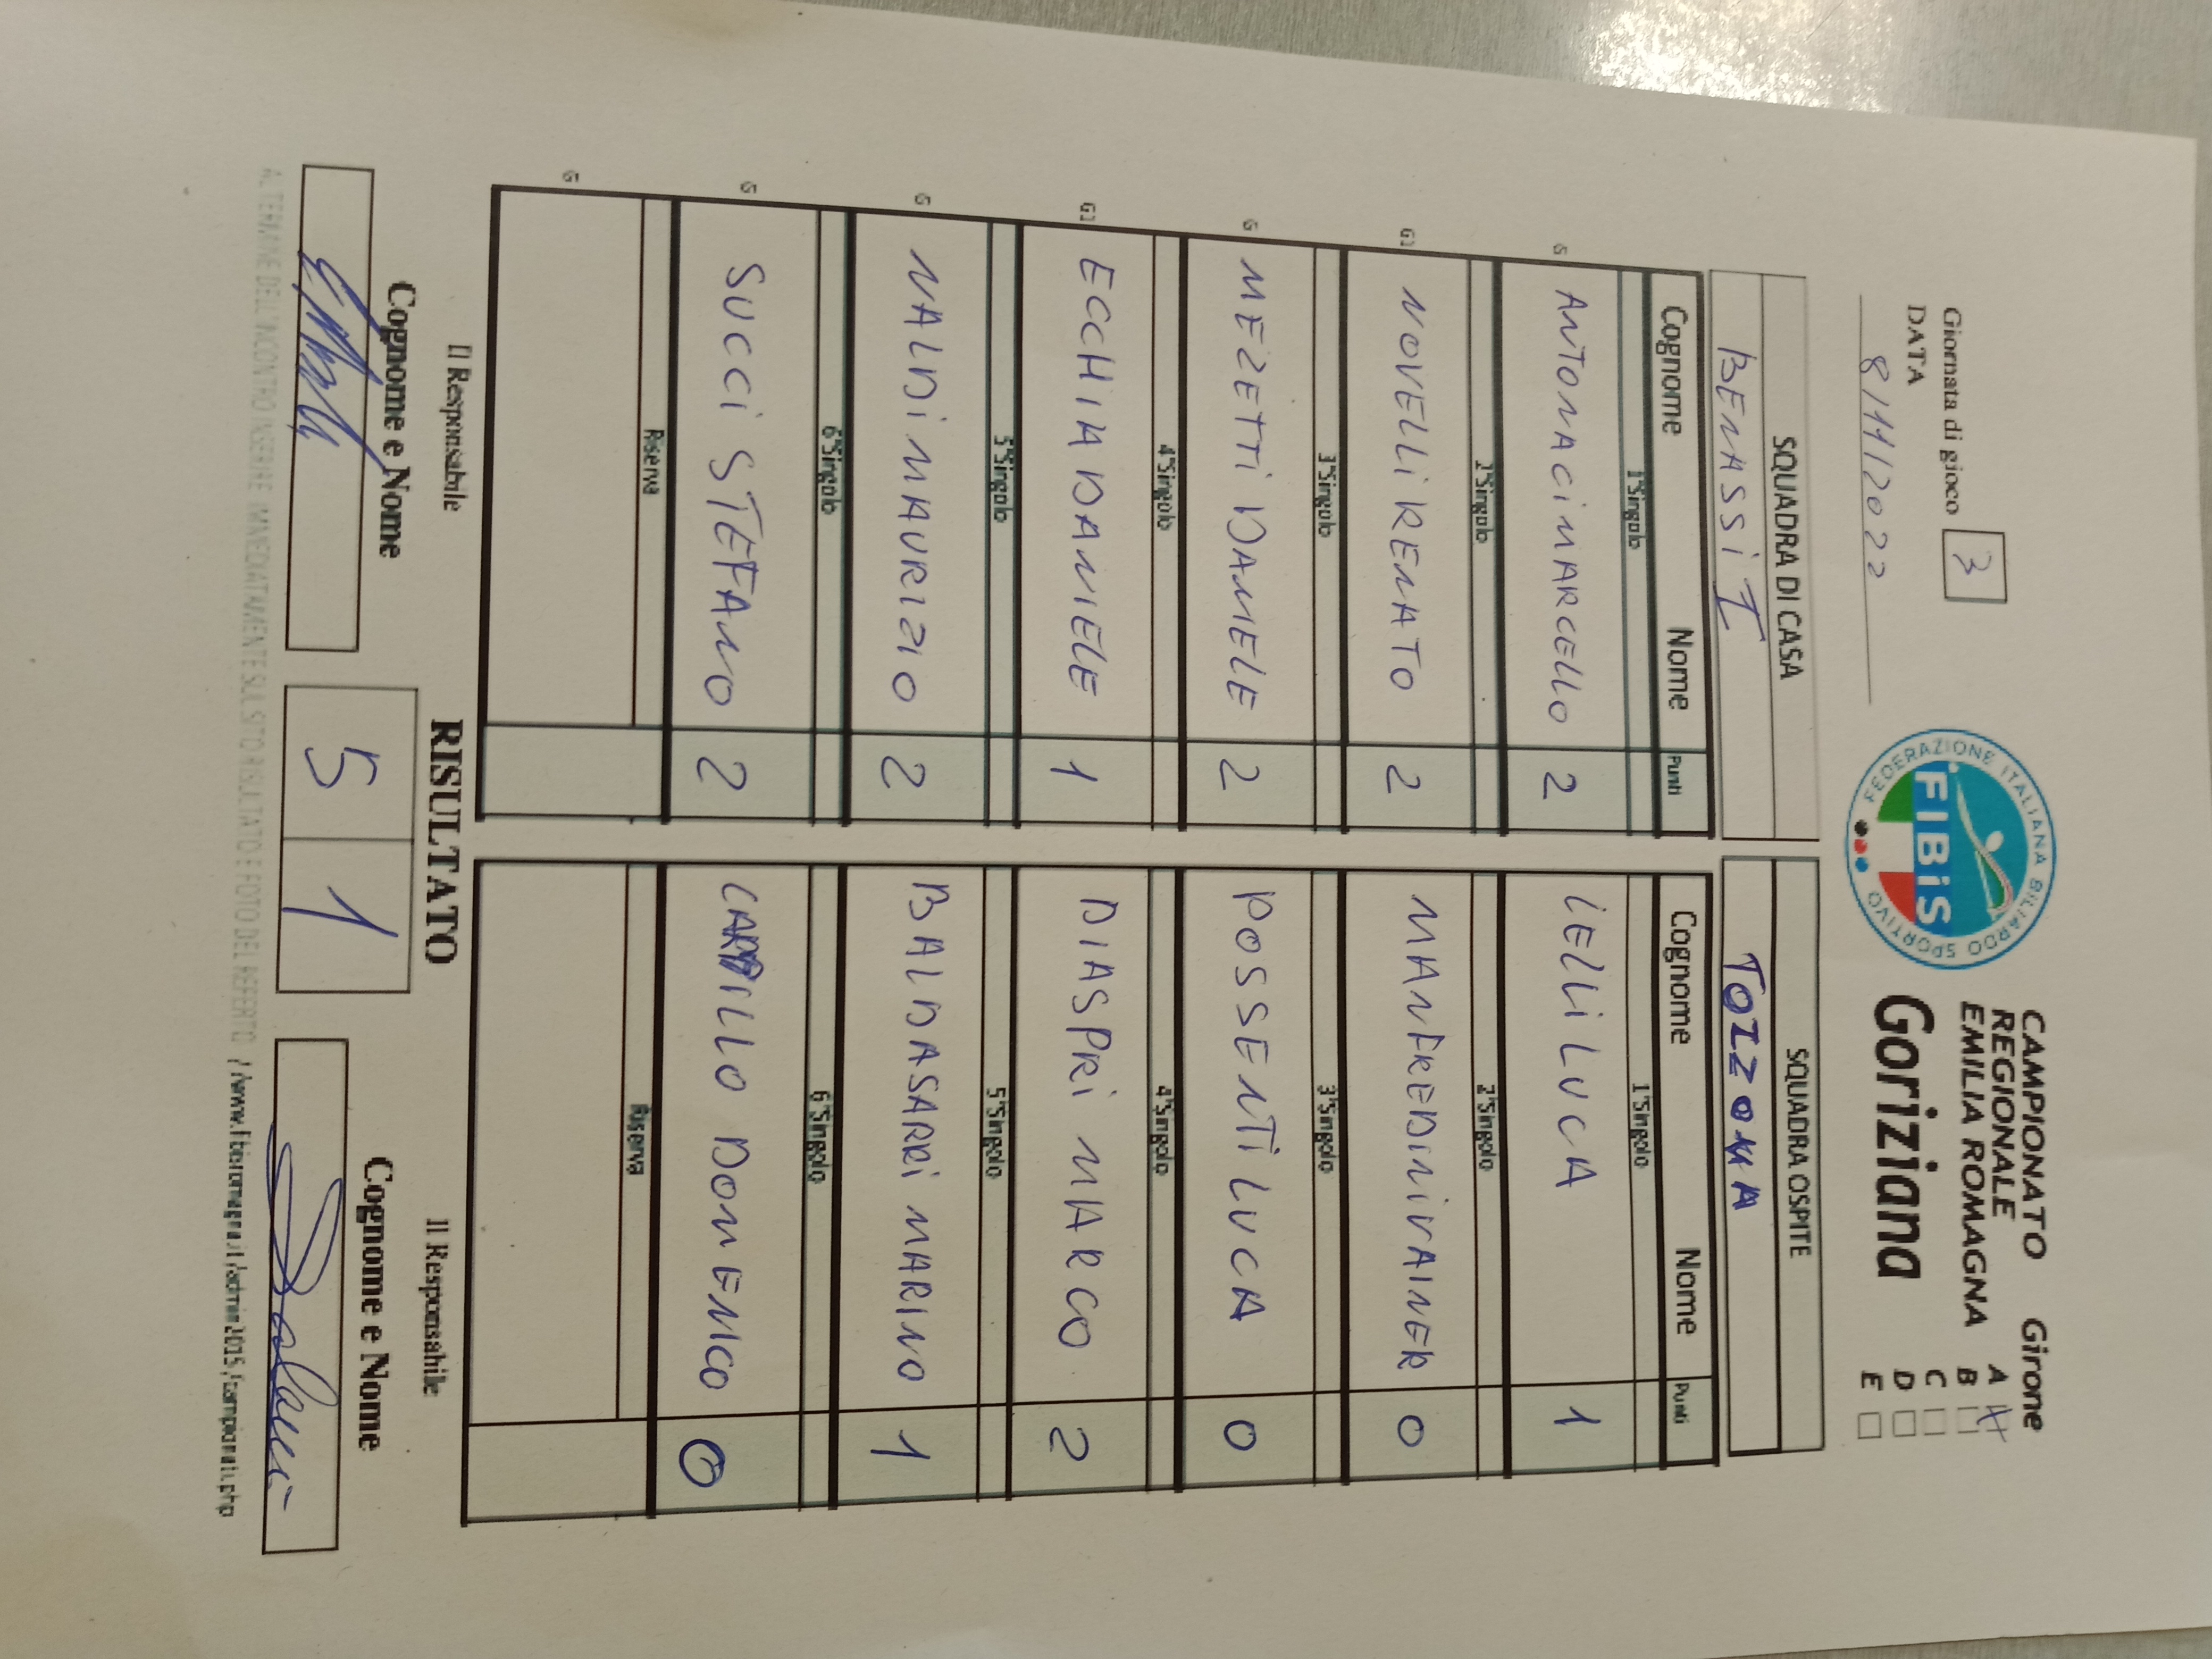 Giornata di gioco 3
DATA
8/11/2022
FEDERAZIONE ITALIANA BILIARDO SPORTIVO
FIBiS
CAMPIONATO Girone
REGIONALE A X
EMILIA ROMAGNA B
C
Goriziana D
E
SQUADRA DI CASA SQUADRA OSPITE
BENASSI I TOZZONA
Cognome Nome Punti Cognome Nome Punti
1°Singolo 1°Singolo
ANTONACI MARCELLO 2 IELLI LUCA 1
2°Singolo 2°Singolo
NOVELLI RENATO 2 MANFREDINI VAINER 0
3°Singolo 3°Singolo
MEZETTI DANIELE 2 POSSENTI LUCA 0
4°Singolo 4°Singolo
ECCHIA DANIELE 1 DIASPRI MARCO 2
5°Singolo 5°Singolo
NALDI MAURIZIO 2 BALDASARRI MARINO 1
6°Singolo 6°Singolo
SUCCI STEFANO 2 CARILLO DOMENICO 0
Riserva Riserva
Il Responsabile RISULTATO Il Responsabile
Cognome e Nome 5 1 Cognome e Nome
AL TERMINE DELL'INCONTRO INSERIRE IMMEDIATAMENTE SUL SITO RISULTATO E FOTO DEL REFERTO